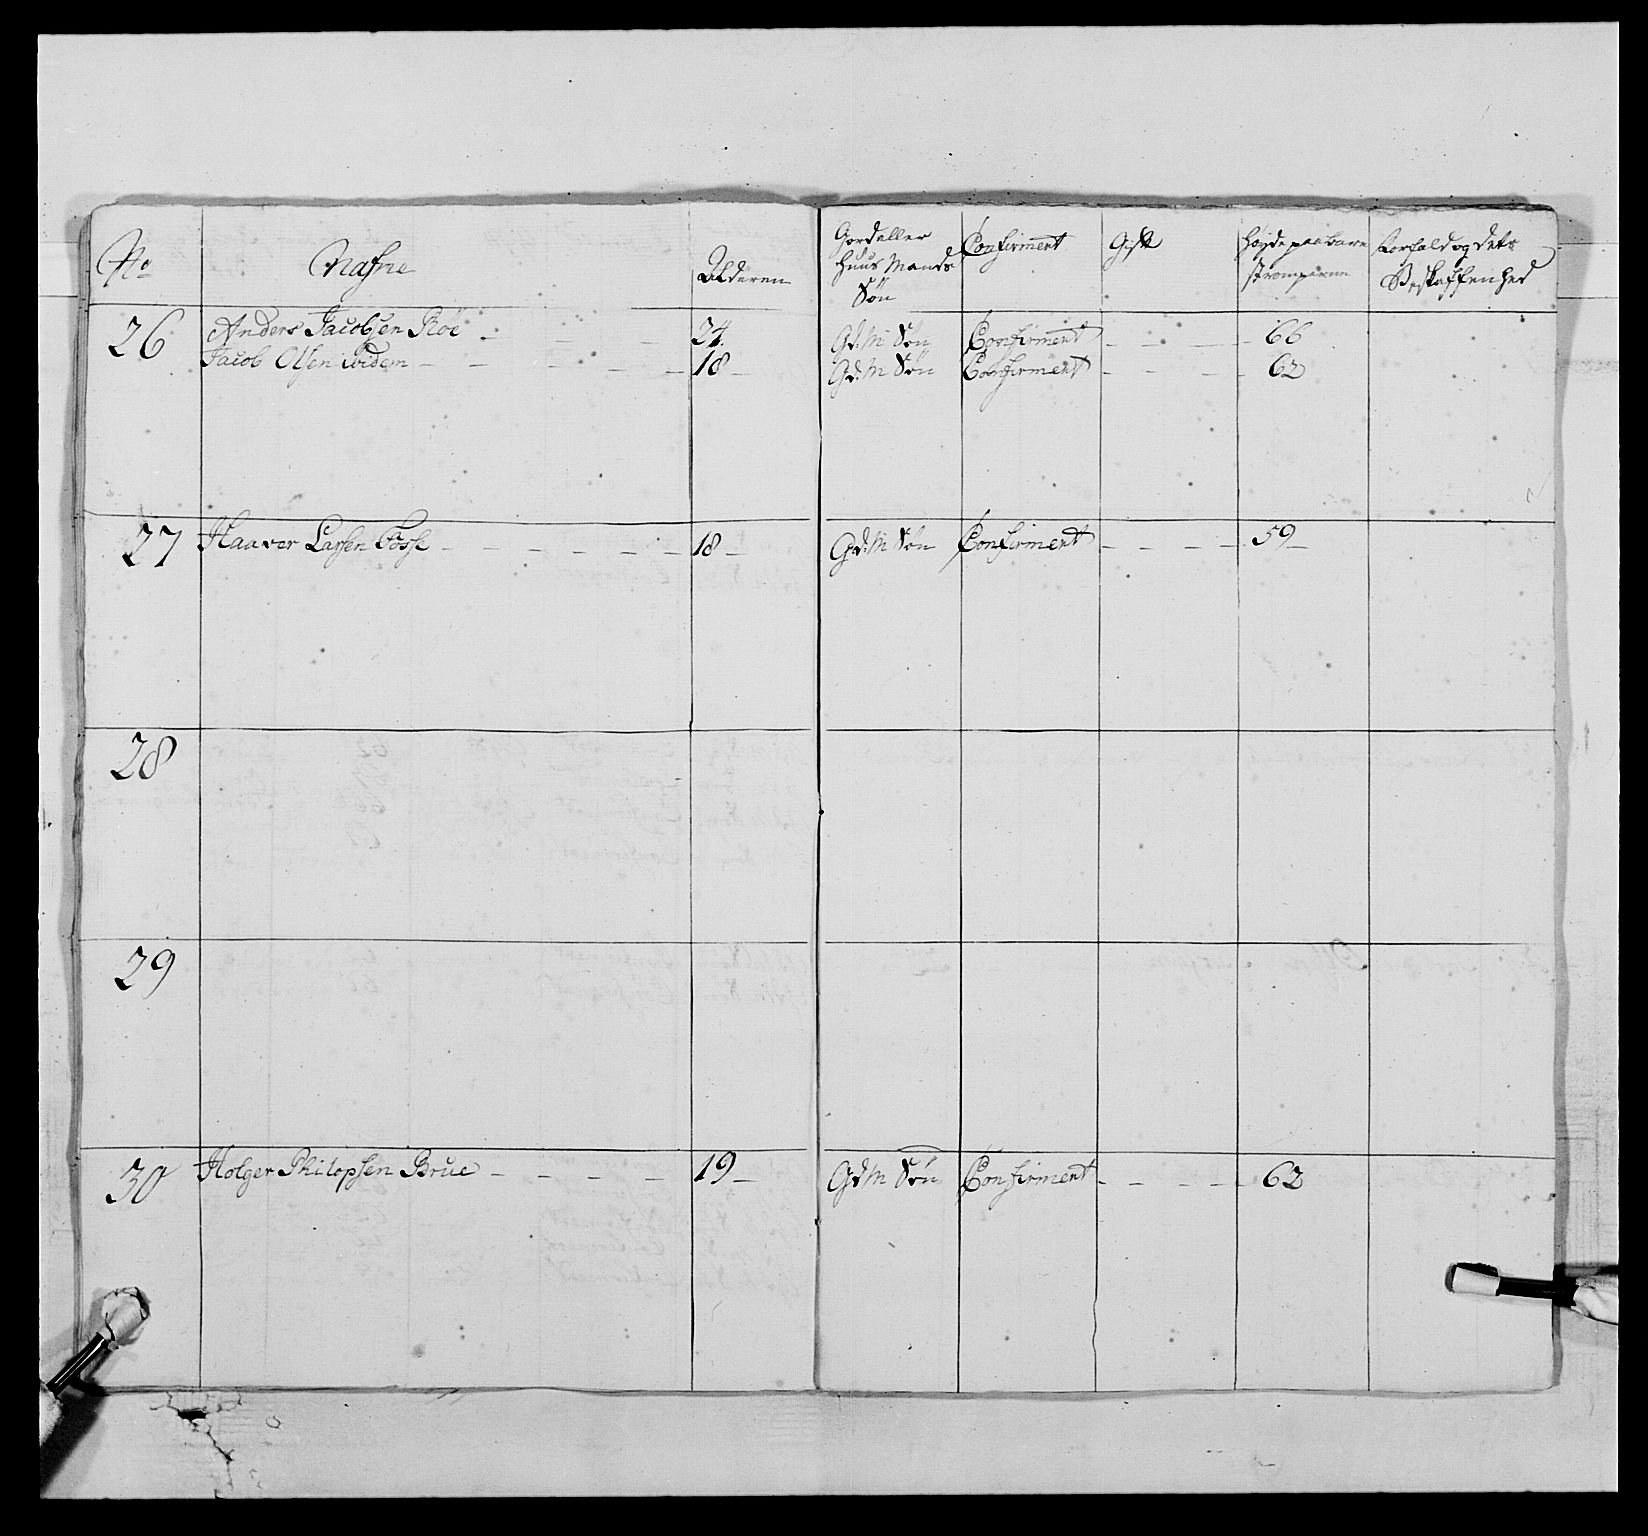 No Nafne Alderen Gord eller Huus Mands Søn Confirment Gift Høyde paa bare strømperne Forfald og dets Beskaffenhed
26 Anders Jacobsen Röe - 24. Gd: M Søn Confirment - - - - 66
Jacob Olsen ibidem - - - - - 18 - Gd: M Søn Confirment - - - - 62
27 Haaver Larsen Fosse - - - - - - 18 - Gd: M Søn Confirment - - - - 59 -
28
29
30 Holger Philopsen Brue - - - - - 19 - Gd M Søn Confirment - - - - 62